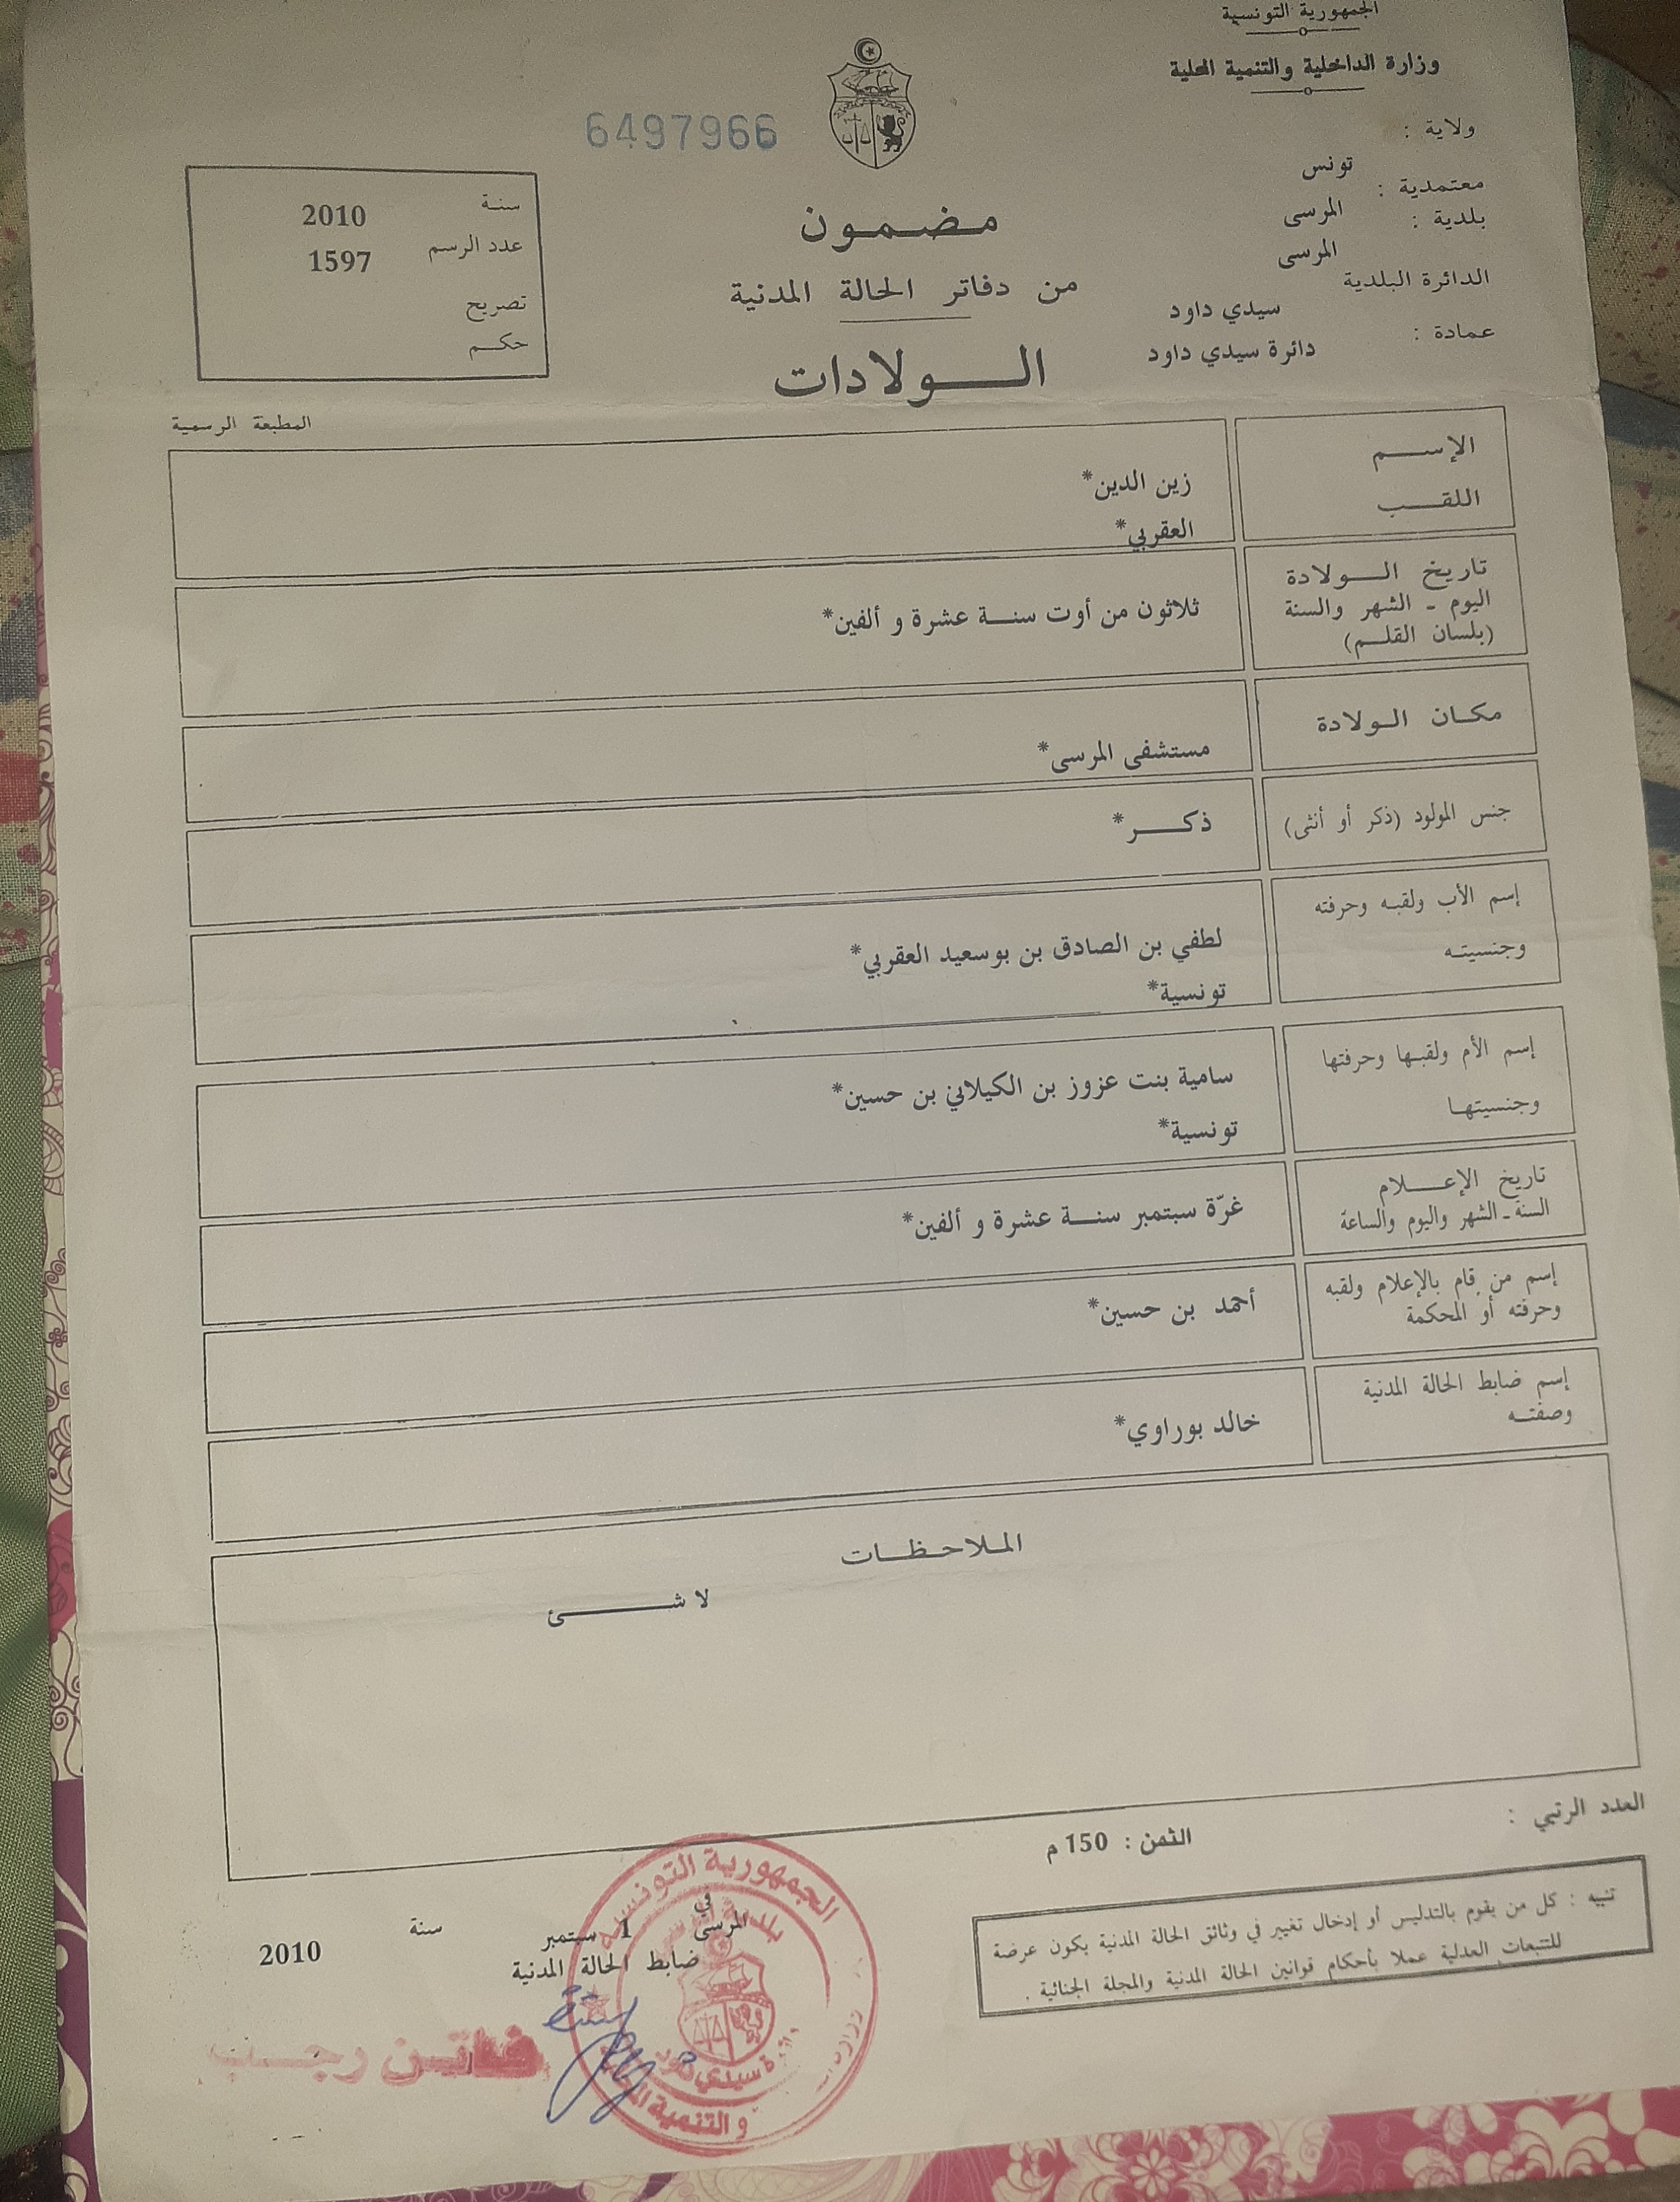 الجمهورية التونسية
وزارة الداخلية والتنمية المحلية
ولاية :
تونس
معتمدية :
المرسى
بلدية :
المرسى
الدائرة البلدية
سيدي داود
عمادة :
دائرة سيدي داود
6497966
مضمون
من دفاتر الحالة المدنية
الولادات
سنة 2010
عدد الرسم 1597
تصريح
حكم
المطبعة الرسمية
الإسم
زين الدين*
اللقب
العقربي*
تاريخ الولادة
اليوم - الشهر والسنة
(بلسان القلم)
ثلاثون من أوت سنة عشرة و ألفين*
مكان الولادة
مستشفى المرسى*
جنس المولود (ذكر أو أنثى)
ذكر*
إسم الأب ولقبه وحرفته
وجنسيته
لطفي بن الصادق بن بوسعيد العقربي*
تونسية*
إسم الأم ولقبها وحرفتها
وجنسيتها
سامية بنت عزوز بن الكيلاني بن حسين*
تونسية*
تاريخ الإعلام
السنة - الشهر واليوم والساعة
غرّة سبتمبر سنة عشرة و ألفين*
إسم من قام بالإعلام ولقبه
وحرفته أو المحكمة
أحمد بن حسين*
إسم ضابط الحالة المدنية
وصفته
خالد بوراوي*
الملاحظات
لا شئ
العدد الرتبي :
الثمن : 150 م
تنبيه : كل من يقوم بالتدليس أو إدخال تغيير في وثائق الحالة المدنية يكون عرضة
للتتبعات العدلية عملا بأحكام قوانين الحالة المدنية والمجلة الجنائية .
المرسى في 1 سبتمبر سنة 2010
ضابط الحالة المدنية
الجمهورية التونسية
بلدية
دائرة سيدي داود
وزارة
والتنمية
فاتن رجب